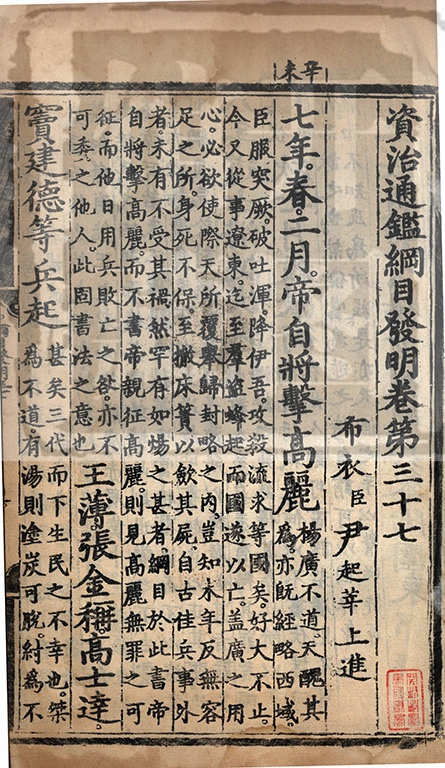 辛未
資治通鑑綱目發明卷第三十七
布衣臣尹起莘上進
七年。春。二月。帝自將擊高麗
楊廣不道。天醜其
爲。亦旣經略西域。
臣服突厥。破吐渾。降伊吾。攻殺流求等國矣。好大不止。
今又從事遼東。迄至羣盜蜂起而國遂以亡。盖廣之用
心。必欲使際天所覆擧歸封略之內。豈知末年反無容
足之所。身死不保。至撤床簀以斂其屍。自古佳兵事外
者。未有不受其禍。然罕有如煬之甚者。綱目於此書帝
自將擊高麗。而不書帝親征高麗。則見高麗無罪之可
征。而他日用兵敗亡之咎。亦不
可委之他人。此固書法之意也
王薄。張金稱。高士達。
竇建德等兵起
甚矣三代而下生民之不幸也。桀
爲不道。有湯則塗炭可脫。紂爲不